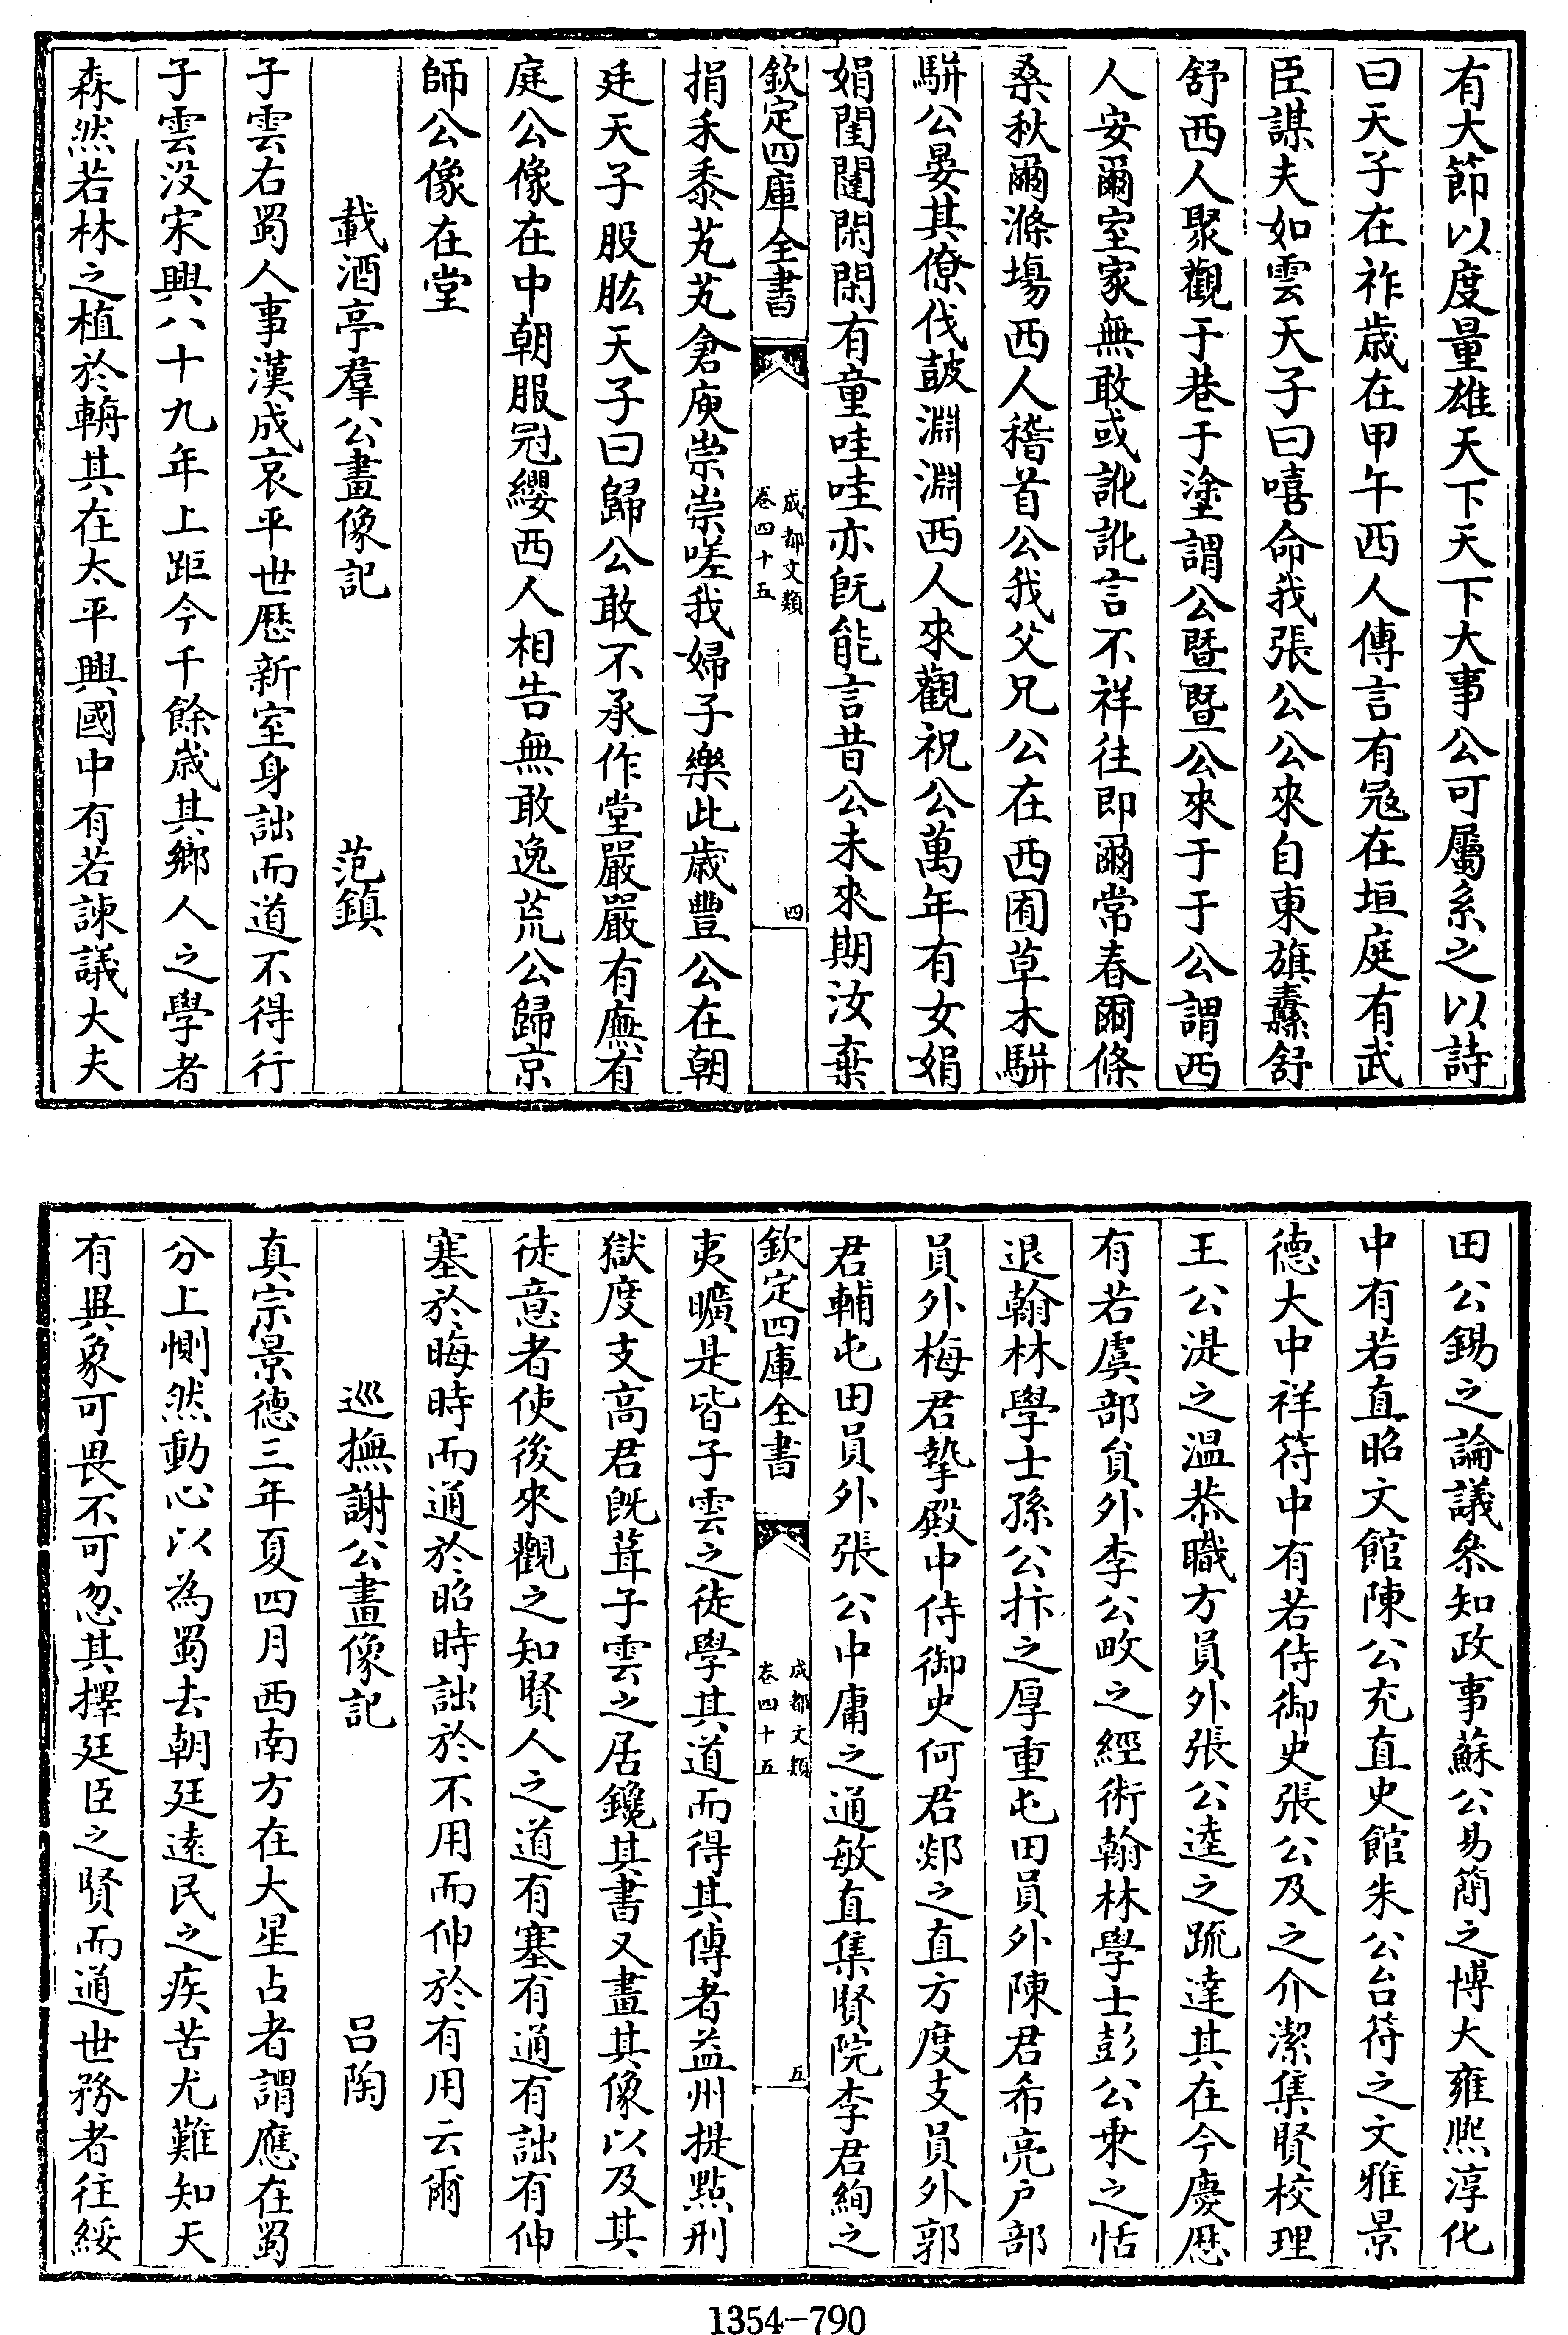 有大節以度量雄天下天下大事公可屬系之以詩
曰天子在祚歳在甲午西人傳言有冦在垣庭有武
臣謀夫如雲天子曰嘻命我張公公來自東旗纛舒
舒西人聚觀于巷于塗謂公暨暨公來于于公謂西
人安爾室家無敢或訛訛言不祥往即爾常春爾條
桑秋爾滌塲西人稽首公我父兄公在西囿草木駢
駢公宴其僚伐鼓淵淵西人來觀祝公萬年有女娟
娟閨闥閑閑有童哇哇亦既能言昔公未來期汝棄
欽定四庫全書
成都文類
卷四十五
四
捐禾黍芃芃倉庾崇崇嗟我婦子樂此歳豐公在朝
廷天子股肱天子曰歸公敢不承作堂嚴嚴有廡有
庭公像在中朝服冠纓西人相告無敢逸荒公歸京
師公像在堂
載酒亭羣公畫像記
范鎮
子雲右蜀人事漢成哀平世歴新室身詘而道不得行
子雲没宋興八十九年上距今千餘歲其鄉人之學者
森然若林之植於輈其在太平興國中有若諫議大夫
田公錫之論議叅知政事蘇公易簡之博大雍熈淳化
中有若直昭文館陳公充直史館朱公台符之文雅景
德大中祥符中有若侍御史張公及之介潔集賢校理
王公湜之温恭職方員外張公逵之疏達其在今慶歴
有若虞部貟外李公畋之經術翰林學士彭公乗之恬
退翰林學士孫公抃之厚重屯田員外陳君希亮户部
員外梅君摯殿中侍御史何君郯之直方度支員外郭
君輔屯田員外張公中庸之通敏直集賢院李君絢之
欽定四庫全書
成都文類
卷四十五
五
夷曠是皆子雲之徒學其道而得其傳者益州提點刑
獄度支高君既葺子雲之居鑱其書又畫其像以及其
徒意者使後來觀之知賢人之道有塞有通有詘有伸
塞於晦時而通於昭時詘於不用而伸於有用云爾
巡撫謝公畫像記
吕陶
真宗景徳三年夏四月西南方在大星占者謂應在蜀
分上惻然動心以為蜀去朝廷逺民之疾苦尤難知天
有異象可畏不可忽其擇廷臣之賢而通世務者往綏
1354-790